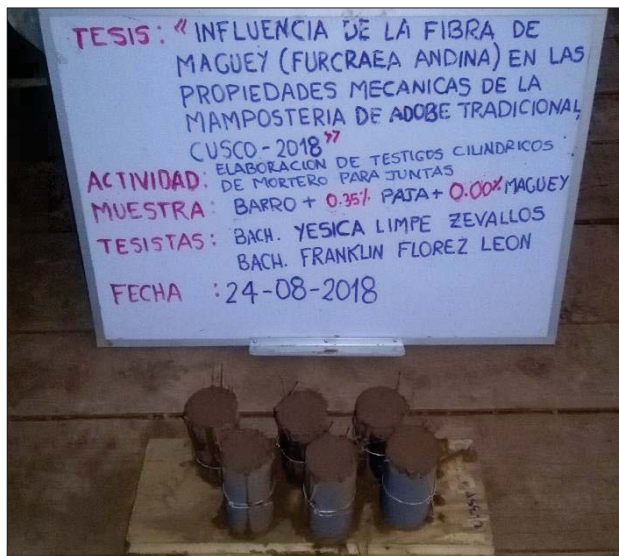 TESIS: "INFLUENCIA DE LA FIBRA DE
MAGUEY (FURCRAEA ANDINA) EN LAS
PROPIEDADES MECANICAS DE LA
MAMPOSTERIA DE ADOBE TRADICIONAL,
CUSCO-2018"
ACTIVIDAD: ELABORACION DE TESTIGOS CILINDRICOS
DE MORTERO PARA JUNTAS
MUESTRA: BARRO + 0.35% PAJA + 0.00% MAGUEY
TESISTAS: BACH. YESICA LIMPE ZEVALLOS
BACH. FRANKLIN FLOREZ LEON
FECHA : 24-08-2018